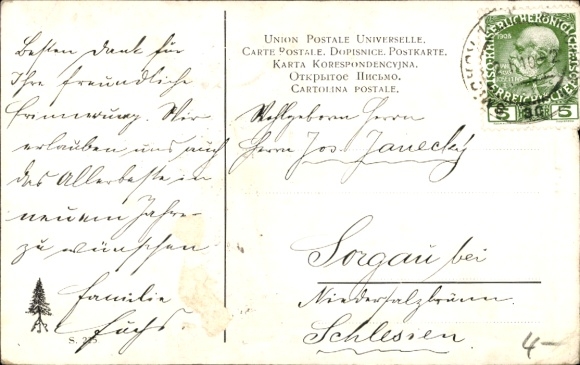 Besten Dank für
Ihre freundliche
Erinnerung. Wir
erlauben uns auch
das Allerbeste im
neuem Jahre
zu wünschen
Familie
Fuchs.
S. 235
UNION POSTALE UNIVERSELLE.
CARTE POSTALE. DOPISNICE. POSTKARTE.
KARTA KORESPONDENCYJNA.
ОТКРЫТОЕ ПИСЬМО.
CARTOLINA POSTALE.
Wohlgeboren Herrn
Herrn Jos. Janecký
Sorgau bei
Niedersalzbrunn.
Schlesien.
4-
1908
5 5